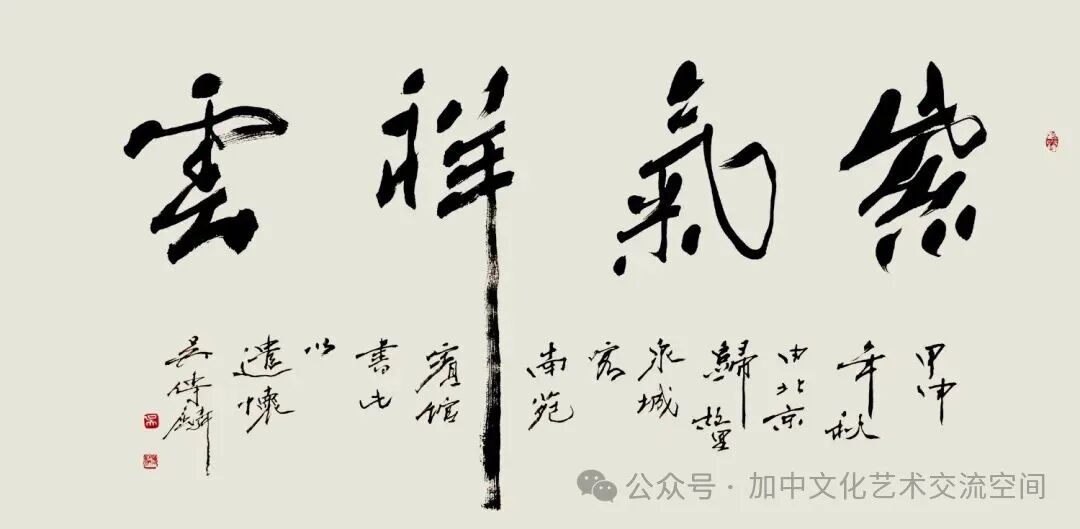 紫氣祥雲
甲申
年秋
由北京
歸
泉城
客
南苑
賓館
書此
以
遣懷
吳傳麟
公众号 · 加中文化艺术交流空间